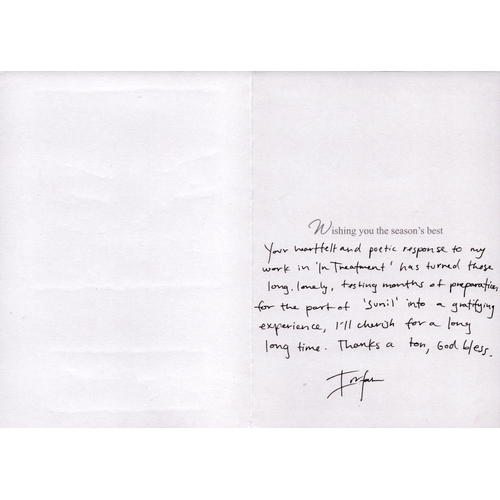 Wishing you the season's best
Your heartfelt and poetic response to my
work in 'In Treatment' has turned those
long, lonely, testing months of preparation
for the part of 'Sunil' into a gratifying
experience, I'll cherish for a long
long time. Thanks a ton, God bless.
Irrfan